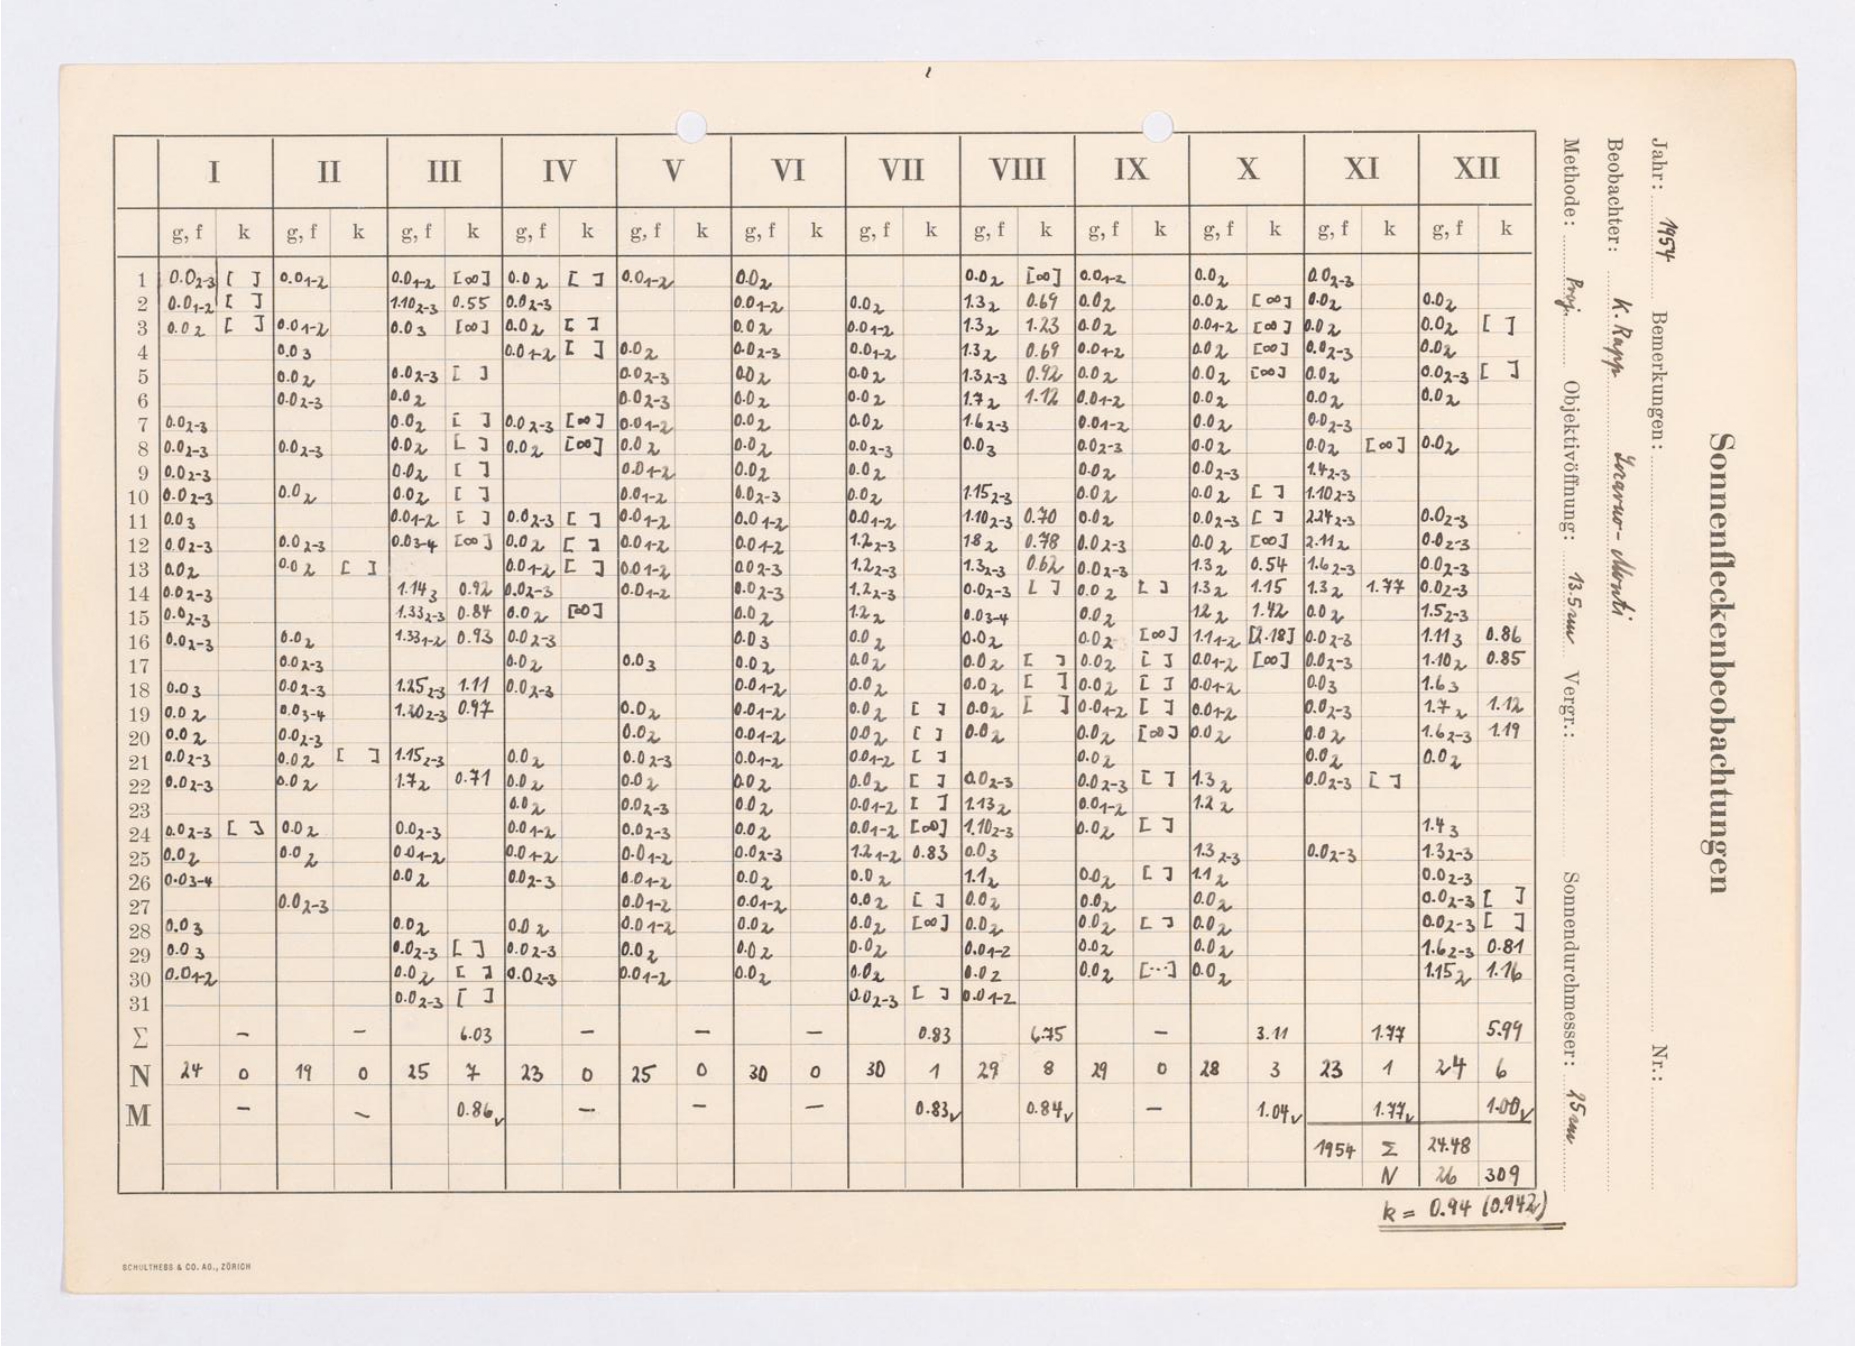 I II III IV V VI VII VIII IX X XI XII
g, f k g, f k g, f k g, f k g, f k g, f k g, f k g, f k g, f k g, f k g, f k g, f k
1 0.02-3 [ ] 0.01-2 0.01-2 [∞] 0.02 [ ] 0.01-2 0.02 0.02 [∞] 0.01-2 0.02 0.02-3
2 0.01-2 [ ] 1.102-3 0.55 0.02-3 0.01-2 0.02 1.32 0.69 0.02 0.02 [∞] 0.02 0.02
3 0.02 [ ] 0.01-2 0.03 [∞] 0.02 [ ] 0.02 0.01-2 1.32 1.23 0.02 0.01-2 [∞] 0.02 0.02 [ ]
4 0.03 0.01-2 [ ] 0.02 0.02-3 0.01-2 1.32 0.69 0.01-2 0.02 [∞] 0.02-3 0.02
5 0.02 0.02-3 [ ] 0.02-3 0.02 0.02 1.32-3 0.92 0.02 0.02 [∞] 0.02 0.02-3 [ ]
6 0.02-3 0.02 0.02-3 0.02 0.02 1.72 1.12 0.01-2 0.02 0.02 0.02
7 0.02-3 0.02 [ ] 0.02-3 [∞] 0.01-2 0.02 0.02 1.62-3 0.01-2 0.02 0.02-3
8 0.02-3 0.02-3 0.02 [ ] 0.02 [∞] 0.02 0.02 0.02-3 0.03 0.02-3 0.02 0.02 [∞] 0.02
9 0.02-3 0.02 [ ] 0.01-2 0.02 0.02 0.02 0.02-3 1.42-3
10 0.02-3 0.02 0.02 [ ] 0.01-2 0.02-3 0.02 1.152-3 0.02 0.02 [ ] 1.102-3
11 0.03 0.01-2 [ ] 0.02-3 [ ] 0.01-2 0.01-2 0.01-2 1.102-3 0.70 0.02 0.02-3 [ ] 2.242-3 0.02-3
12 0.02-3 0.02-3 0.03-4 [∞] 0.02 [ ] 0.01-2 0.01-2 1.22-3 1.82 0.78 0.02-3 0.02 [∞] 2.112 0.02-3
13 0.02 0.02 [ ] 0.01-2 [ ] 0.01-2 0.02-3 1.22-3 1.32-3 0.62 0.02-3 1.32 0.54 1.62-3 0.02-3
14 0.02-3 1.143 0.92 0.02-3 0.01-2 0.02-3 1.22-3 0.02-3 [ ] 0.02 [ ] 1.32 1.15 1.32 1.77 0.02-3
15 0.02-3 1.332-3 0.84 0.02 [∞] 0.02 1.22 0.03-4 0.02 1.22 1.42 0.02 1.52-3
16 0.02-3 0.02 1.331-2 0.93 0.02-3 0.03 0.02 0.02 0.02 [∞] 1.11-2 [2.18] 0.02-3 1.113 0.86
17 0.02-3 0.02 0.03 0.02 0.02 0.02 [ ] 0.02 [ ] 0.01-2 [∞] 0.02-3 1.102 0.85
18 0.03 0.02-3 1.252-3 1.11 0.02-3 0.01-2 0.02 0.02 [ ] 0.02 [ ] 0.01-2 0.03 1.63
19 0.02 0.03-4 1.202-3 0.97 0.02 0.01-2 0.02 [ ] 0.02 [ ] 0.01-2 [ ] 0.01-2 0.02-3 1.72 1.12
20 0.02 0.02-3 0.02 0.01-2 0.02 [ ] 0.02 0.02 [∞] 0.02 0.02 1.62-3 1.19
21 0.02-3 0.02 [ ] 1.152-3 0.02 0.02-3 0.01-2 0.01-2 [ ] 0.02 0.02 0.02
22 0.02-3 0.02 1.72 0.71 0.02 0.02 0.02 0.02 [ ] 0.02-3 0.02-3 [ ] 1.32 0.02-3 [ ]
23 0.02 0.02-3 0.02 0.01-2 [ ] 1.132 0.01-2 1.22
24 0.02-3 [ ] 0.02 0.02-3 0.01-2 0.02-3 0.02 0.01-2 [∞] 1.102-3 0.02 [ ] 1.43
25 0.02 0.02 0.01-2 0.01-2 0.01-2 0.02-3 1.21-2 0.83 0.03 1.32-3 0.02-3 1.32-3
26 0.03-4 0.02 0.02-3 0.01-2 0.02 0.02 1.12 0.02 [ ] 1.12 0.02-3
27 0.02-3 0.01-2 0.01-2 0.02 [ ] 0.02 0.02 0.02 0.02-3 [ ]
28 0.03 0.02 0.02 0.01-2 0.02 0.02 [∞] 0.02 0.02 [ ] 0.02 0.02-3 [ ]
29 0.03 0.02-3 [ ] 0.02-3 0.02 0.02 0.02 0.01-2 0.02 0.02 1.62-3 0.81
30 0.01-2 0.02 [ ] 0.02-3 0.01-2 0.02 0.02 0.02 0.02 [...] 0.02 1.152 1.16
31 0.02-3 [ ] 0.02-3 [ ] 0.01-2
Σ – – 6.03 – – – 0.83 6.75 – 3.11 1.77 5.99
N 24 0 19 0 25 7 23 0 25 0 30 0 30 1 29 8 29 0 28 3 23 1 24 6
M – – 0.86✓ – – – 0.83✓ 0.84✓ – 1.04✓ 1.77✓ 1.00✓
1954 Σ 24.48
N 26 309
k = 0.94 (0.942)
SCHULTHESS & CO. AG., ZÜRICH
Sonnenfleckenbeobachtungen
Jahr: 1954 Bemerkungen: Nr.:
Beobachter: K. Rapp Locarno-Monti
Methode: Proj. Objektivöffnung: 13.5 cm Vergr.: Sonnendurchmesser: 25 cm